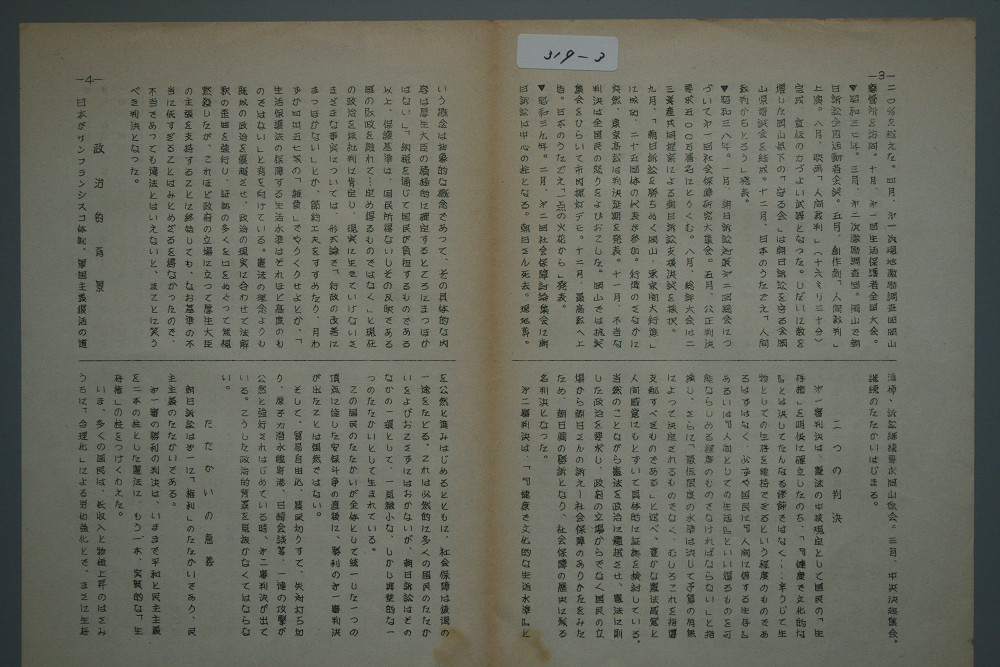 319-3
—3—
二〇%を超えた。四月、第一次現地激励調査団岡山
療養所を訪問。十月、第一回生活と保護者全国大会。
▼昭和三七年。三月、第二次激励調査団。岡山で朝
日訴訟全国活動者会議。五月、創作劇「人間裁判」
上演。八月、映画「人間裁判」(十六ミリ三十分)
完成。宣伝の力づよい武器となった。しだいに数を
増した岡山県下の「守る会」は朝日訴訟を守る会岡
山県協議会を結成。十二月、日本のうたごえ「人間
裁判かちとろう」発表。
▼昭和三八年。一月、朝日訴訟対策第二回総会につ
づいて第一回社会保障研究大集会。五月、公正判決
要求五〇〇名署名にとりくむ。八月、総評大会は二
三済産代明提案による朝日訴訟支援決議を採択。
九月、「朝日訴訟を勝ちぬく岡山・東京間大行進」
に成功、二十五団体の代表が参加。行進のさなかに
突然、東京高裁は判決延期を発表。十一月、不当な
判決は全国民の怒りをよびおこした。岡山では抗議
集会をひらいて市内提灯デモ。十二月、最高裁へ上
告。日本のうたごえ「一点の火花から」発表。
▼昭和三九年。二月、第二回社会保障討論集会に朝
日訴訟は中心の柱となる。朝日さん死去。現地葬、
追悼、訴訟継続要求岡山集会。三月、中央決起集会。
継続のたたかいはじまる。
二つの判決
第一審判決は、憲法の中核規定として国民の「生
存権」を明快に確立したのち、「『健康で文化的な
』とは決してたんなる修飾ではなく……辛うじて生
物としての生存を維持できるという程度のものであ
るはずはなく、必ずや国民に『人間に値する生存』
あるいは『人間としての生活』といい得るものを可
能ならしめる程度のものでなければならない」と指
摘し、さらに「最低限度の水準は決して予算の有無
によって決定されるものでなく、むしろこれを指導
支配すべきものである」と述べ、豊かな憲法感覚と
人間感覚にもとずいて具体的に証拠を検討している。
当然のことながら憲法を政治に優越させ、憲法に則
した政治を要求し、政府の立場からでなく国民の立
場から朝日さんの訴え=社会保障のありかたをみた
ため、朝日側の勝訴となり、社会保障の歴史に残る
名判決となった。
第二審判決は、「『健康で文化的な生活水準』と
—4—
いう概念は抽象的な概念であって、その具体的な内
容は厚生大臣の積極的に確定するところにまつほか
はない」、「納税を通じて国民が負担するものである
以上、保護基準は、国民所得ないしその反映である
国の財政を離れて一定め得るものではなく」と現在
の政治を無批判に肯定し、現実に生きていけないさ
まざまな事実については、形式論で、行政の改善に
まつほかない」とか、節約工夫をすすめたり、月わ
ずか四五七銭の「雑費」でやりくりせよとか、「
生活保護法の保障する生活水準はそれほど高度のも
のではない」と背を向けている。憲法の理念よりも
既成の政治を優越させ、政治の現実に合わせて法解
釈の歪曲を強行し、証拠の多くをはをぬぐって黙視
黙殺したが、これほど政府の立場に立って厚生大臣
の主張を支持することに終始しても、なお基準の不
当に低すぎることはみとめざるを得なかったのか、
不当であっても違法とはいえないと、まことに笑う
べき判決となった。
政治的背景
日本がサンフランシスコ体制、軍国主義復活の道
を公然と進みはじめるとともに、社会保障は後退の
一途をたどる。これは必然的に多くの国民のたたか
いをよびおこさずにはおかないが、朝日訴訟はその
なかの一環として、一見微小な、しかし典型的な一
つのたたかいとして生まれている。
そして、国民のたたかいが全体として統一した一つの
頂点に達した安保斗争の直後に、勝利の第一審判決
が出たことは偶然ではない。
そして、貿易自由化、農民切りすて、失対打ち切
り、原子力潜水艦寄港、日韓会談等、一連の攻撃が
公然と強行されはじめている時、第二審判決が出て
いる。こうした政治的背景を見抜かなくてはならな
い。
たたかいの意義
朝日訴訟は第一に「権利」のたたかいであり、民
主主義のたたかいである。
第一審の勝利の判決は、いままで平和と民主主義
を二本の柱とした憲法に、もう一本、実質的な「生
存権」の柱をつけくわえた。
いま、多くの国民は、低収入と物価上昇のはさみ
うちに、「合理化」による労働強化とで、まさに生存